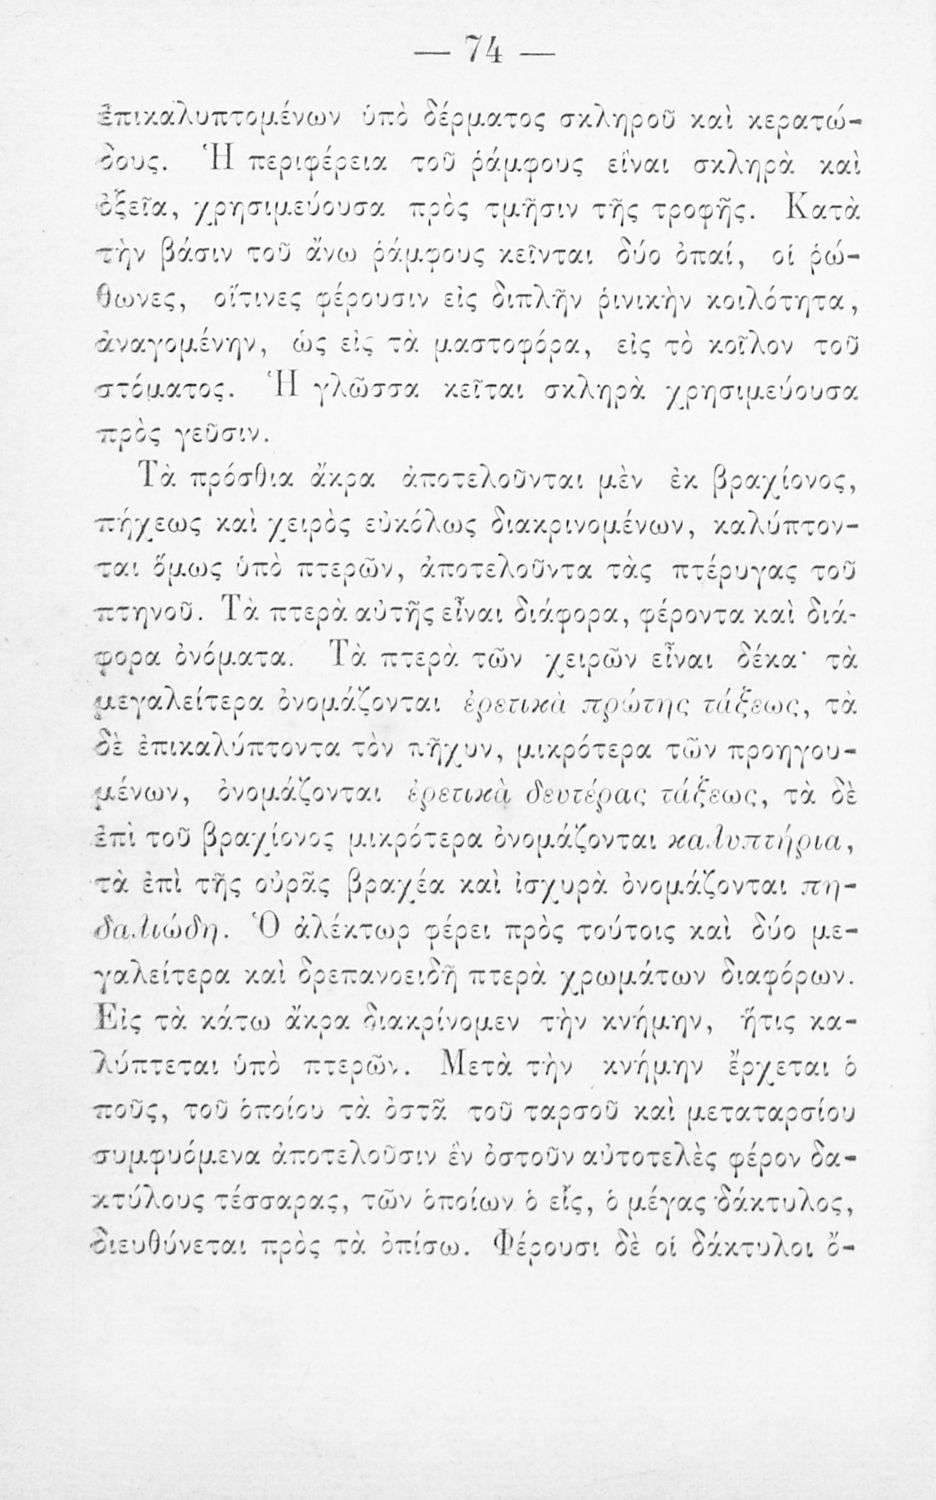 — 74 —
ἐπικαλυπτομένων ὑπὸ δέρματος σκληροῦ καὶ κερατώ-
δους. Ἡ περιφέρεια τοῦ ῥάμφους εἶναι σκληρὰ καὶ
ὀξεῖα, χρησιμεύουσα πρὸς τμῆσιν τῆς τροφῆς. Κατὰ
τὴν βάσιν τοῦ ἄνω ῥάμφους κεῖνται δύο ὀπαί, οἱ ῥώ-
θωνες, οἵτινες φέρουσιν εἰς διπλῆν ῥινικὴν κοιλότητα,
ἀναγομένην, ὡς εἰς τὰ μαστοφόρα, εἰς τὸ κοῖλον τοῦ
στόματος. Ἡ γλῶσσα κεῖται σκληρὰ χρησιμεύουσα
πρὸς γεῦσιν.
Τὰ πρόσθια ἄκρα ἀποτελοῦνται μὲν ἐκ βραχίονος,
πήχεως καὶ χειρὸς εὐκόλως διακρινομένων, καλύπτον-
ται ὅμως ὑπὸ πτερῶν, ἀποτελοῦντα τὰς πτέρυγας τοῦ
πτηνοῦ. Τὰ πτερὰ αὐτῆς εἶναι διάφορα, φέροντα καὶ διά-
φορα ὀνόματα. Τὰ πτερὰ τῶν χειρῶν εἶναι δέκα· τὰ
μεγαλείτερα ὀνομάζονται ἐρετικὰ πρώτης τάξεως, τὰ
δὲ ἐπικαλύπτοντα τὸν πῆχυν, μικρότερα τῶν προηγου-
μένων, ὀνομάζονται ἐρετικὰ δευτέρας τάξεως, τὰ δὲ
ἐπὶ τοῦ βραχίονος μικρότερα ὀνομάζονται καλυπτήρια,
τὰ ἐπὶ τῆς οὐρᾶς βραχέα καὶ ἰσχυρὰ ὀνομάζονται πη-
δαλιώδη. Ὁ ἀλέκτωρ φέρει πρὸς τούτοις καὶ δύο με-
γαλείτερα καὶ δρεπανοειδῆ πτερὰ χρωμάτων διαφόρων.
Εἰς τὰ κάτω ἄκρα διακρίνομεν τὴν κνήμην, ἥτις κα-
λύπτεται ὑπὸ πτερῶν. Μετὰ τὴν κνήμην ἔρχεται ὁ
ποῦς, τοῦ ὁποίου τὰ ὀστᾶ τοῦ ταρσοῦ καὶ μεταταρσίου
συμφυόμενα ἀποτελοῦσιν ἓν ὀστοῦν αὐτοτελὲς φέρον δα-
κτύλους τέσσαρας, τῶν ὁποίων ὁ εἷς, ὁ μέγας δάκτυλος,
διευθύνεται πρὸς τὰ ὀπίσω. Φέρουσι δὲ οἱ δάκτυλοι ὄ-